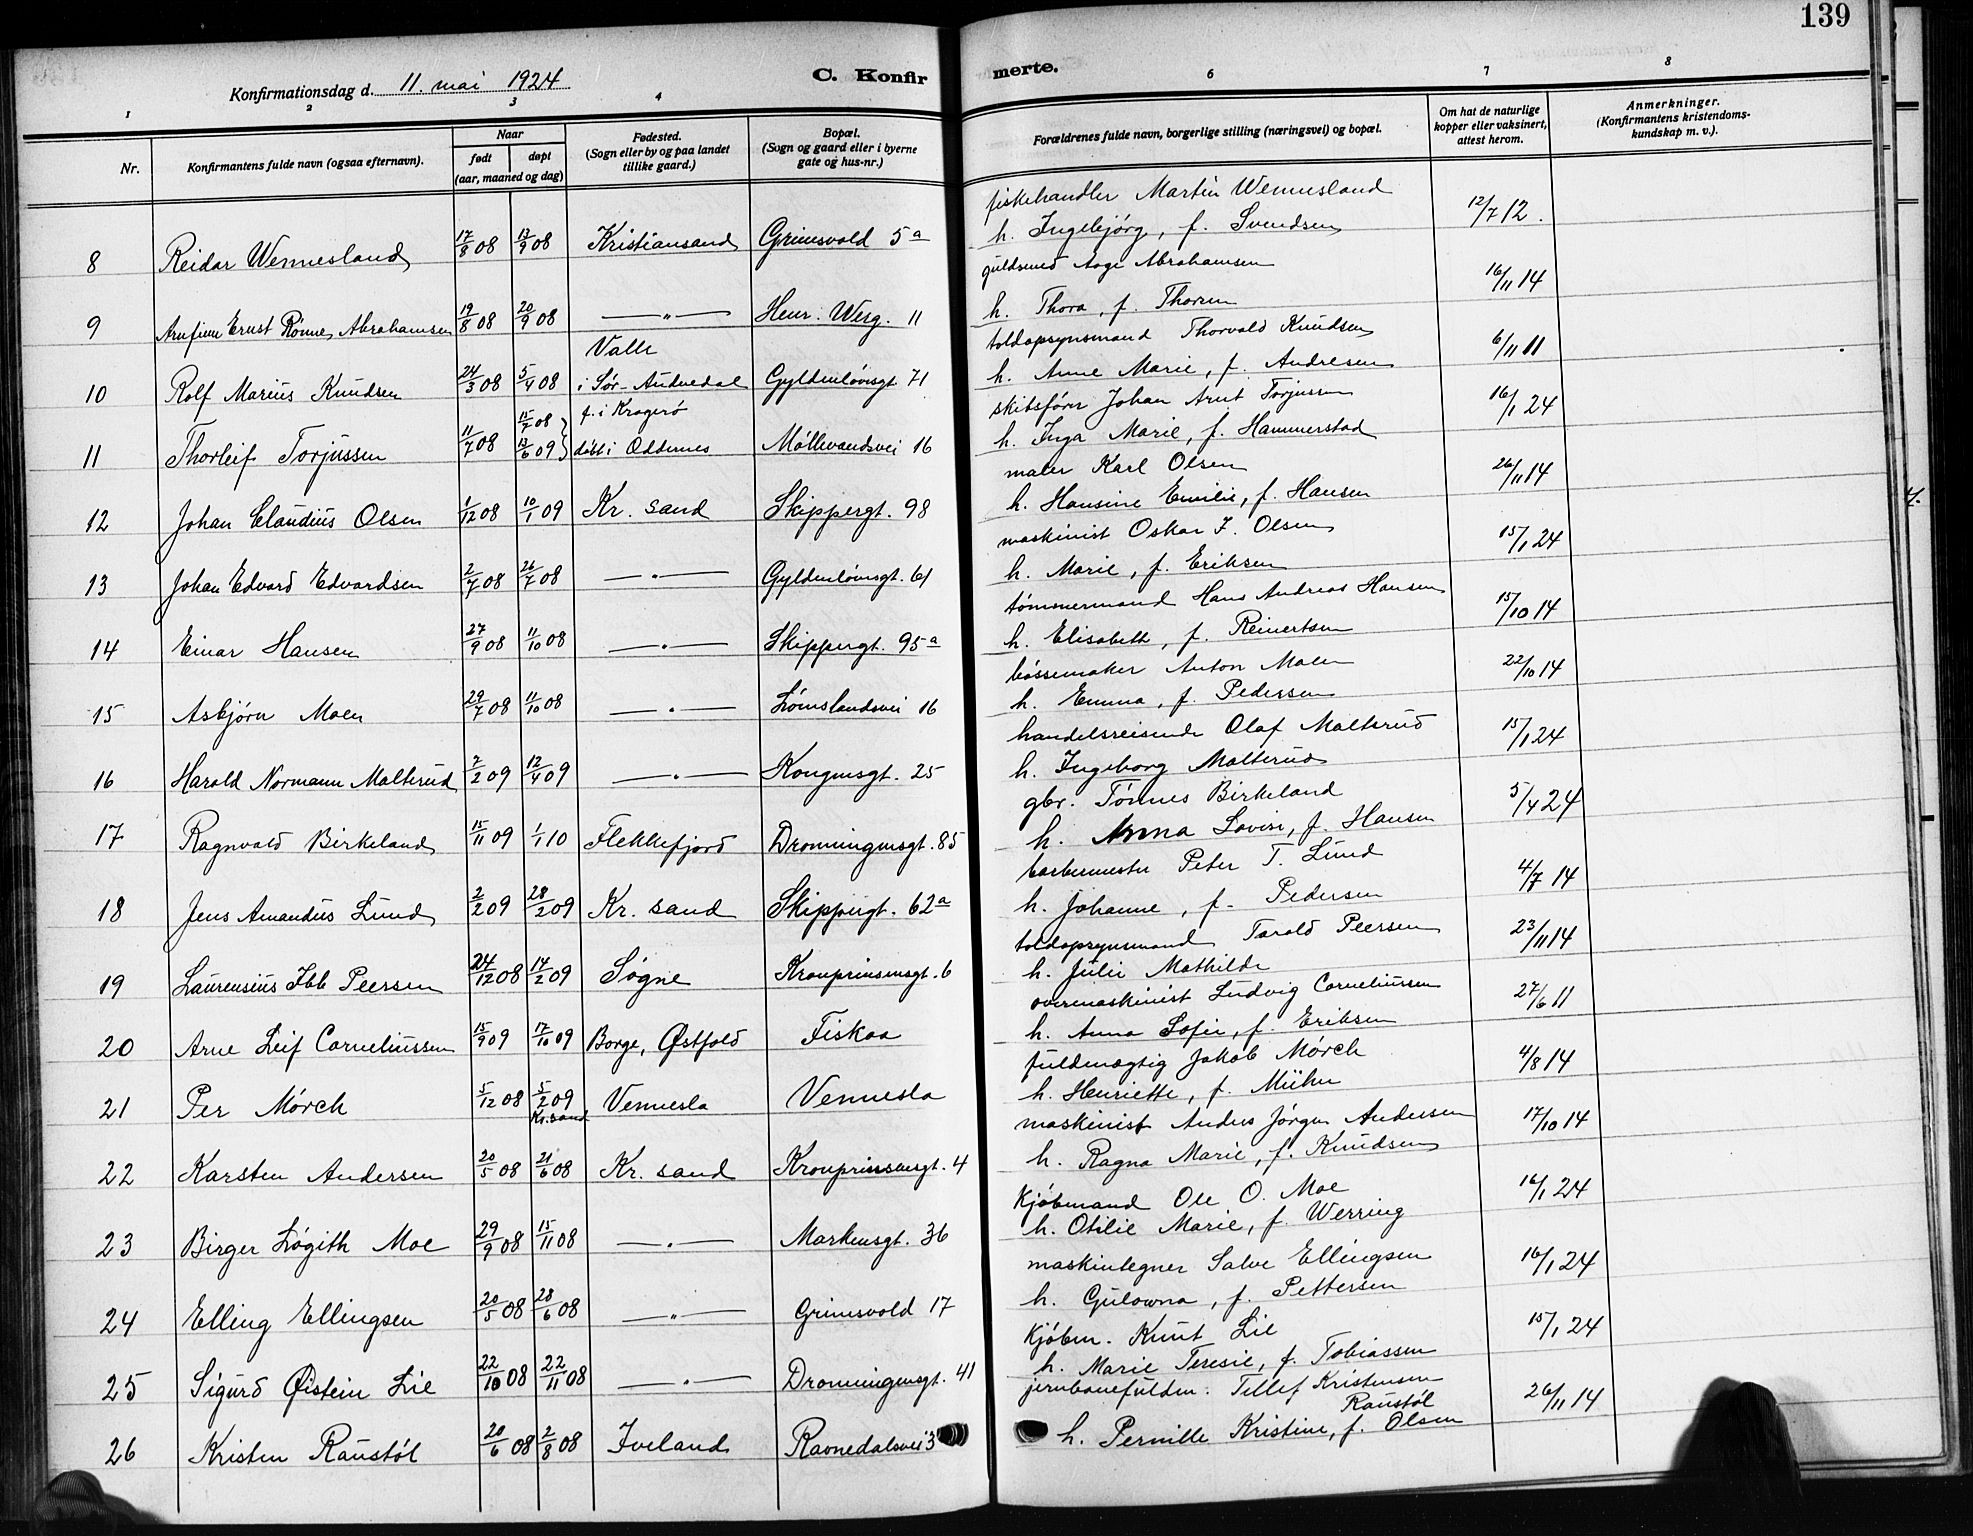 139
Konfirmationsdag d. 11. mai 1924
C. Konfirmerte.
1 2 3 4 6 7 8
Nr.
Konfirmantens fulde navn (ogsaa efternavn).
Naar
født
døpt
(aar, maaned og dag)
Fødested.
(Sogn eller by og paa landet
tillike gaard.)
Bopæl.
(Sogn og gaard eller i byerne
gate og hus-nr.)
Forældrenes fulde navn, borgerlige stilling (næringsvei) og bopæl.
Om hat de naturlige
kopper eller vaksinert,
attest herom.
Anmerkninger.
(Konfirmantens kristendoms-
kundskap m. v.).
fiskehandler Martin Wennesland
8 Reidar Wennesland 17/8 08 13/9 08 Kristiansand Grimsvold 5a h. Ingebjörg, f. Svendsen 12/7 12.
guldsmed Aage Abrahamsen
9 Arnfinn Ernst Rönne Abrahamsen 19/8 08 20/9 08 —„— Henr. Werg. 11 h. Thora, f. Thorsen 16/11 14
toldopsynsmand Thorvald Knudsen
Valle
10 Rolf Marius Knudsen 24/3 08 5/4 08 i Sør-Audnedal Gyldenlövsgt. 71 h. Anne Marie, f. Andresen 6/11 11
skibsförer Johan Arnt Torjussen
15/7 08 f. i Kragerö
11 Thorleif Torjussen 11/7 08 13/6 09 döbt i Oddernes Möllevandsvei 16 h. Inga Marie, f. Hammerstad 16/1 24
maler Karl Olsen
12 Johan Claudius Olsen 1/12 08 10/1 09 Kr. sand Skippergt. 98 h. Hansine Emilie, f. Hansen 26/11 14
maskinist Oskar F. Olsen
13 Johan Edvard Edvardsen 2/7 08 26/7 08 —„— Gyldenlövsgt. 61 h. Marie, f. Eriksen 15/1 24
tömmermand Hans Andreas Hansen
14 Einar Hansen 27/9 08 11/10 08 —„— Skippergt. 95a h. Elisabeth, f. Reinertsen 15/10 14
bössemaker Anton Moen
15 Asbjörn Moen 29/7 08 11/10 08 —„— Lömslandsvei 16 h. Emma, f. Pedersen 22/10 14
handelsreisende Olaf Malterud
16 Harald Normann Malterud 7/2 09 12/4 09 —„— Kongensgt. 25 h. Ingeborg Malterud 15/1 24
gbr. Tönnes Birkeland
17 Ragnvald Birkeland 15/11 09 1/1 10 Flekkefjord Dronningensgt. 85 h. Anna Lovise, f. Hansen 5/4 24
barbermester Peter T. Lund
18 Jens Amandus Lund 2/2 09 28/2 09 Kr. sand Skippergt. 62a h. Johanne, f. Pedersen 4/7 14
toldopsynsmand Tarald Peersen
19 Laurensius Ibb Peersen 24/12 08 14/2 09 Søgne Kronprinsensgt. 6 h. Julie Mathilde 23/11 14
overmaskinist Ludvig Corneliussen
20 Arne Leif Corneliussen 15/9 09 17/10 09 Borge, Østfold Fiskaa h. Anna Sofie, f. Eriksen 27/6 11
fuldmægtig Jakob Mörch
21 Per Mörch 5/12 08 5/2 09 Kr. sand Vennesla Vennesla h. Henriette, f. Mühn 4/8 14
maskinist Anders Jörgen Andersen
22 Karsten Andersen 20/5 08 21/6 08 Kr. sand Kronprinsensgt. 4 h. Ragna Marie, f. Knudsen 17/10 14
Kjöbmand Ole O. Moe
23 Birger Løgith Moe 29/9 08 15/11 08 —„— Markensgt. 36 h. Otilie Marie, f. Werring 16/1 24
maskintegner Salve Ellingsen
24 Elling Ellingsen 20/5 08 28/6 08 —„— Grimsvold 17 h. Gulowna, f. Pettersen 16/1 24
Kjöbm. Knut Lie
25 Sigurd Øistein Lie 22/10 08 22/11 08 —„— Dronningensgt. 41 h. Marie Teresie, f. Tobiassen 15/1 24
jernbanefuldm. Tellef Kristensen
Raustöl
26 Kristen Raustöl 20/6 08 2/8 08 Iveland Ravnedalsvei 3 h. Pernille Kristine, f. Olsen 26/11 14